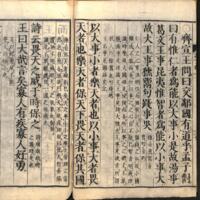 齊宣王問曰交鄰國有道乎孟子對
曰有惟仁者為能以大事小是故湯事
葛文王事昆夷惟智者為能以小事大
故大王事獯鬻句踐事吳
以大事小者樂天者也以小事大者畏
天者也樂天者保天下畏天者保其國
詩云畏天之威于時保之
王曰大哉言矣寡人有疾寡人好勇